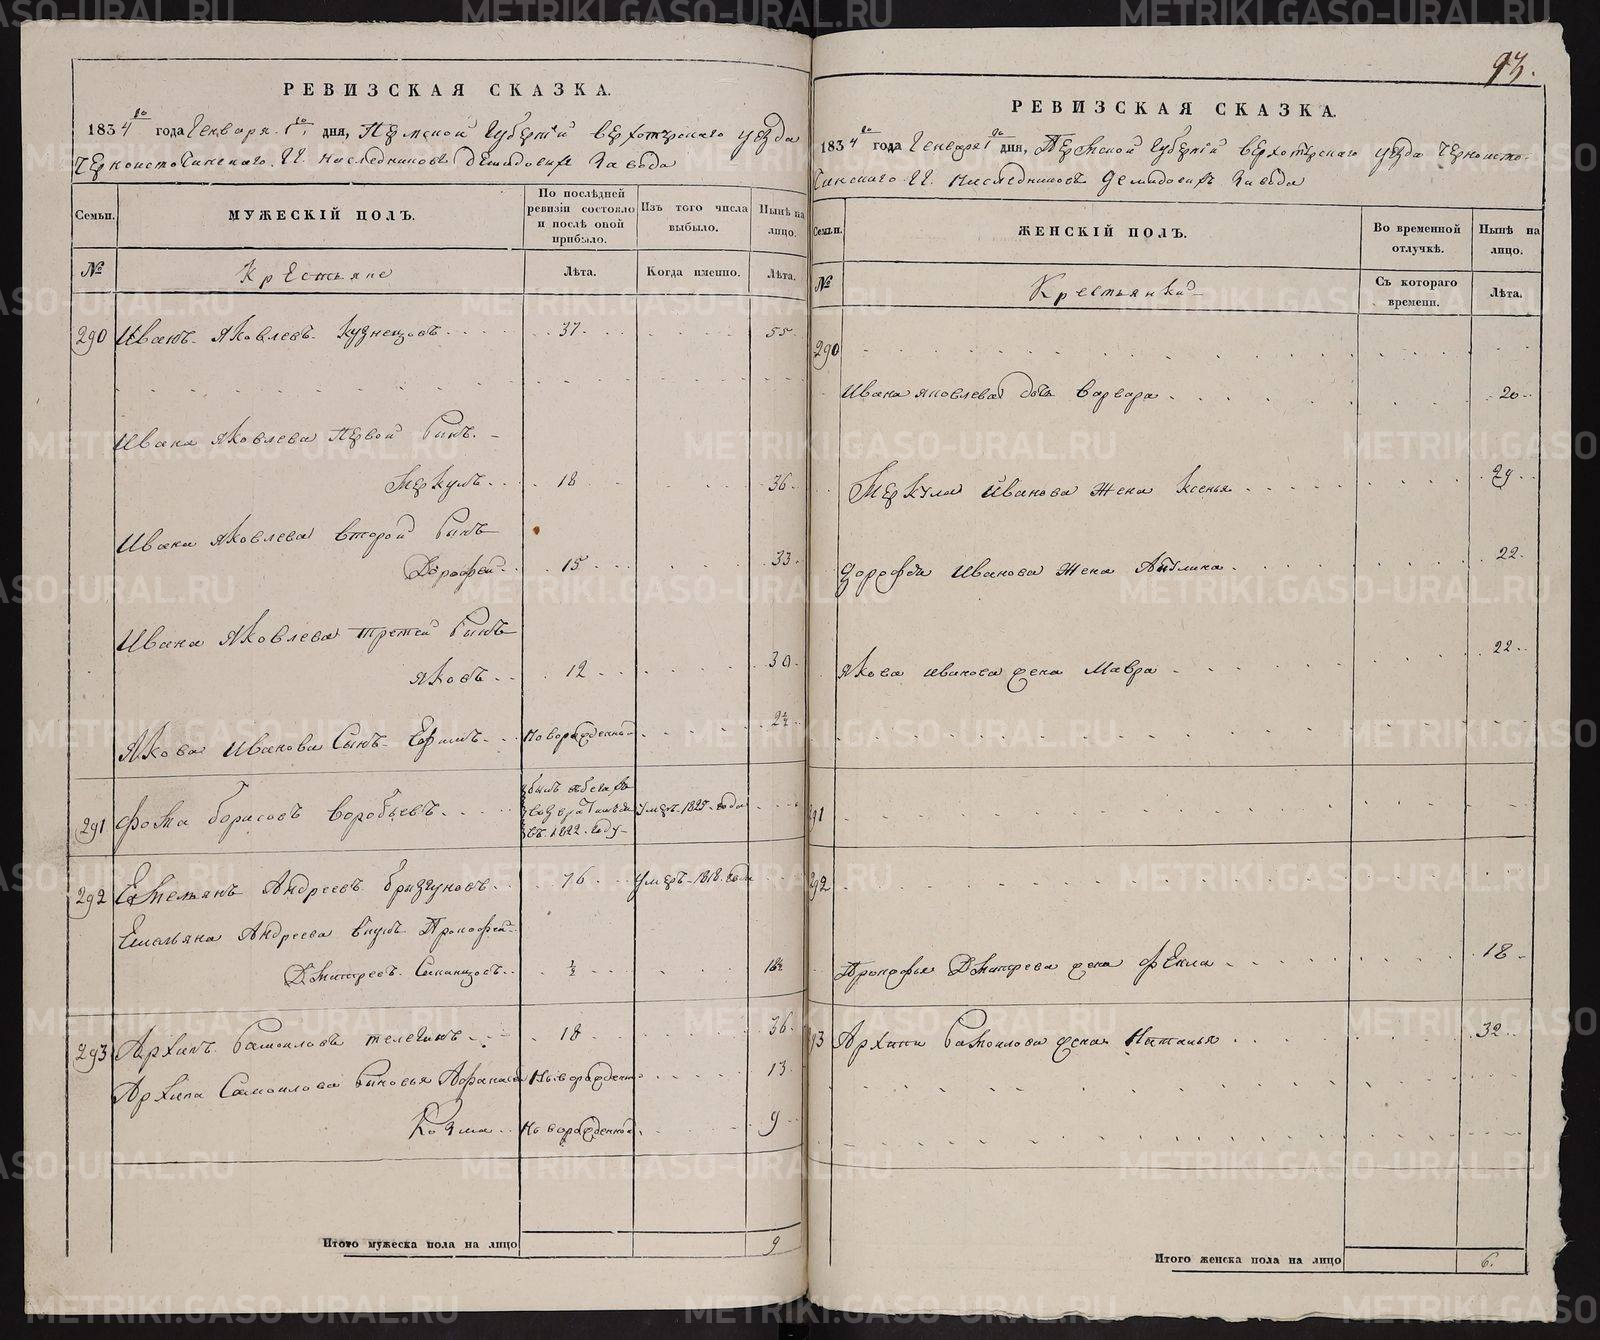 РЕВИЗСКАЯ СКАЗКА.
1834го года Генваря 1го дня, Пермской Губернiи верхотурскаго уезда
Черноисточинскаго Г.г. наследниковъ Демидовыхъ завода
Семьи. МУЖЕСКIЙ ПОЛЪ. По послѣдней ревизiи состояло и послѣ оной прибыло. Изъ того числа выбыло. Нынѣ на лицо.
№ Крестьяне Лѣта. Когда именно. Лѣта.
290 Иванъ Яковлевъ Кузнецовъ 37 55
Ивана Яковлева первой сынъ
Меркулъ 18 36
Ивана Яковлева второй сынъ
Дорофей 15 33
Ивана Яковлева третей сынъ
Яковъ 12 30
Якова Иванова сынъ Ефимъ Новорожденной 2½
291 Фома Борисовъ Воробьевъ былъ в бегахъ возвратился въ 1822 году умеръ 1825 года
292 Емельянъ Андреевъ Бризгуновъ 76 умеръ 1818 года
Емельяна Андреева внукъ Прокофей
Дмитреевъ ½ 18½
293 Архипъ Самойловъ Телегинъ 18 36
Архипа Самойлова сыновья Афанасей Новорожденной 13
Козма Новорожденной 9
Итого мужеска пола на лицо 9
93.
РЕВИЗСКАЯ СКАЗКА.
1834го года Генваря 1го дня, Пермской Губернiи верхотурскаго уезда Черноисто-
чинскаго Г.г. наследниковъ Демидовыхъ завода
Семьи. ЖЕНСКIЙ ПОЛЪ. Во временной отлучкѣ. Нынѣ на лицо.
№ Крестьянки Съ котораго времени. Лѣта.
290
Ивана Яковлева дочь Варвара 20
Меркула Иванова жена Ксенья 29
Дорофея Иванова жена Акулина 22
Якова Иванова жена Мавра 22
291
292
Прокофья Дмитрева жена Фекла 18
293 Архипа Самойлова жена Наталья 32
Итого женска пола на лицо 6.
METRIKI.GASO-URAL.RU